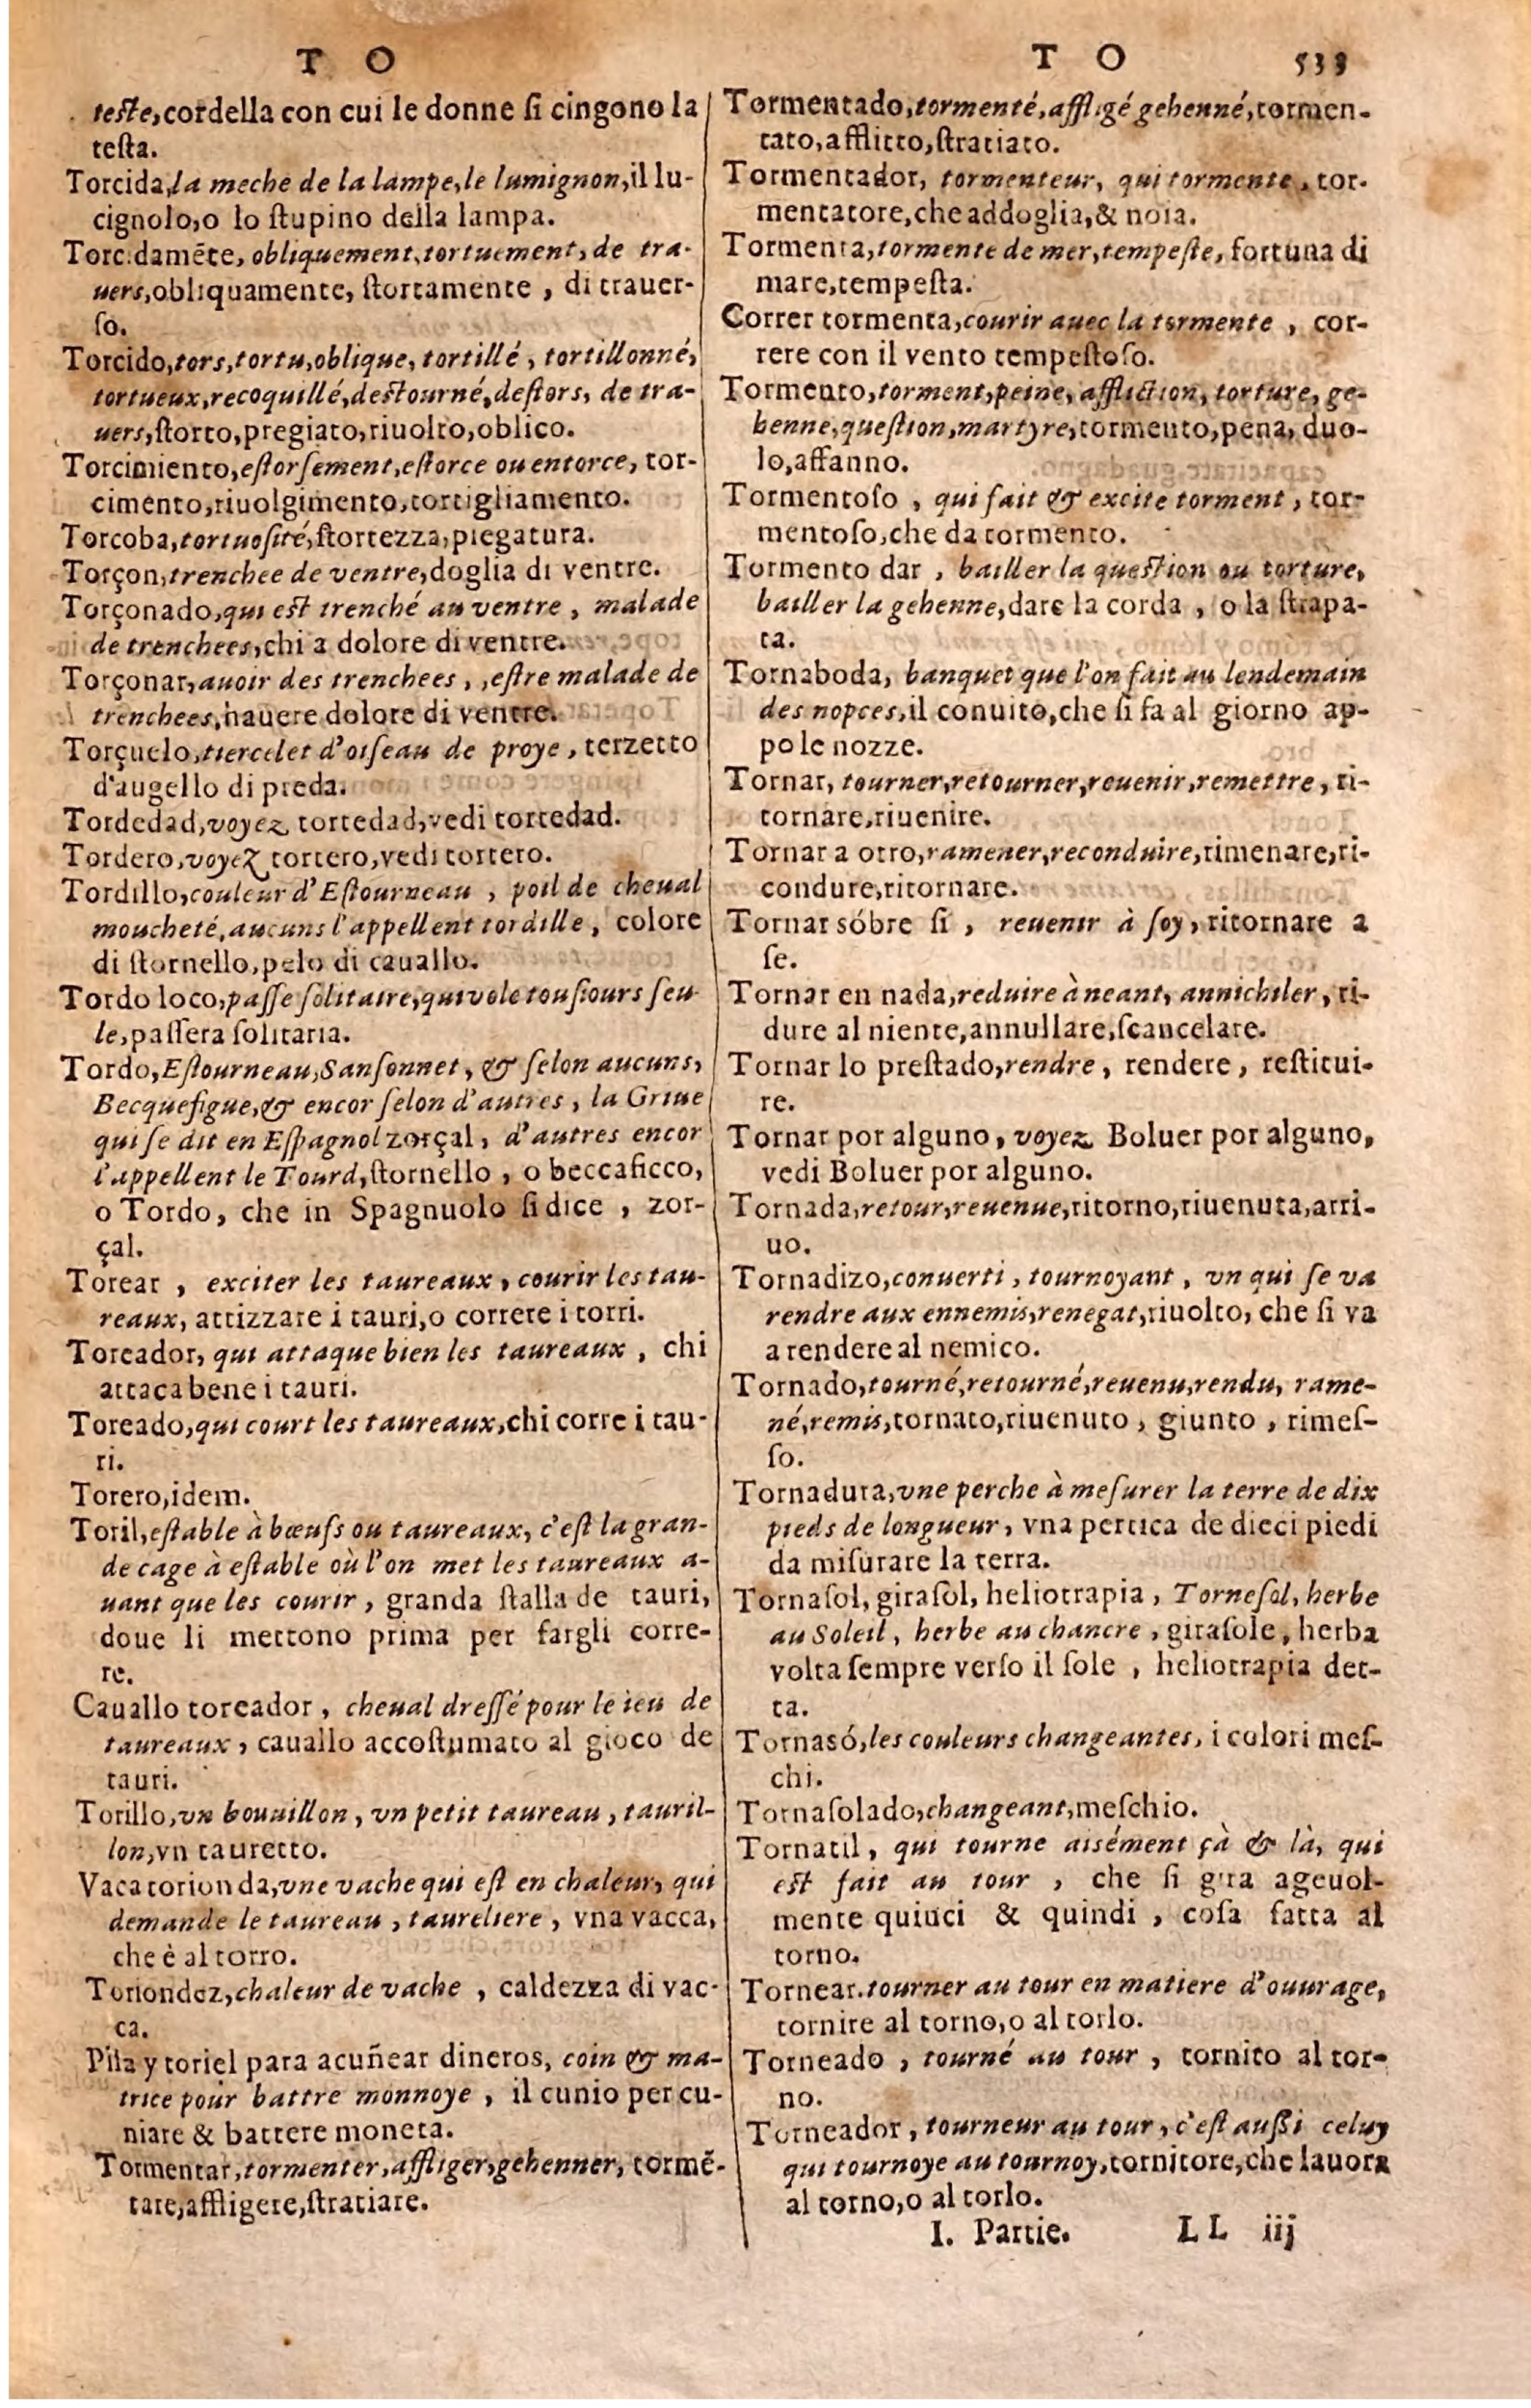 T O
teſte, cordella con cui le donne ſi cingono la
teſta.
Torcida, la meche de la lampe, le lumignon, il lu-
cignolo, o lo ſtupino della lampa.
Torcidamẽte, obliquement, tortuement, de tra-
uers, obliquamente, ſtortamente, di trauer-
ſo.
Torcido, tors, tortu, oblique, tortillé, tortillonné,
tortueux, recoquillé, deſtourné, deſtors, de tra-
uers, ſtorto, pregiato, riuolto, oblico.
Torcimiento, eſtorſement, eſtorce ou entorce, tor-
cimento, riuolgimento, tortigliamento.
Torcoba, tortuoſité, ſtortezza, piegatura.
Torçon, trenchee de ventre, doglia di ventre.
Torçonado, qui eſt trenché au ventre, malade
de trenchees, chi a dolore di ventre.
Torçonar, auoir des trenchees, , eſtre malade de
trenchees, hauere dolore di ventre.
Torçuelo, tiercelet d'oiſeau de proye, terzetto
d'augello di preda.
Tordedad, voyez tortedad, vedi tortedad.
Tordero, voyez tortero, vedi tortero.
Tordillo, couleur d'Eſtourneau, poil de cheual
moucheté, aucuns l'appellent tordille, colore
di ſtornello, pelo di cauallo.
Tordo loco, paſſe ſolitaire, qui vole touſiours ſeu-
le, paſſera ſolitaria.
Tordo, Eſtourneau, Sanſonnet, & ſelon aucuns,
Becquefigue, & encor ſelon d'autres, la Griue
qui ſe dit en Eſpagnol zorçal, d'autres encor
l'appellent le Tourd, ſtornello, o beccaficco,
o Tordo, che in Spagnuolo ſi dice, zor-
çal.
Torear, exciter les taureaux, courir les tau-
reaux, attizzare i tauri, o correre i torri.
Toreador, qui attaque bien les taureaux, chi
attaca bene i tauri.
Toreado, qui court les taureaux, chi corre i tau-
ri.
Torero, idem.
Toril, eſtable à bœufs ou taureaux, c'eſt la gran-
de cage à eſtable où l'on met les taureaux a-
uant que les courir, granda ſtalla de tauri,
doue li mettono prima per fargli corre-
re.
Cauallo toreador, cheual dreſſé pour le ieu de
taureaux, cauallo accoſtumato al gioco de
tauri.
Torillo, vn bouuillon, vn petit taureau, tauril-
lon, vn tauretto.
Vaca torionda, vne vache qui eſt en chaleur, qui
demande le taureau, taureliere, vna vacca,
che è al torro.
Toriondez, chaleur de vache, caldezza di vac-
ca.
Pila y toriel para acuñear dineros, coin & ma-
trice pour battre monnoye, il cunio per cu-
niare & battere moneta.
Tormentar, tormenter, affliger, gehenner, tormẽ-
tare, affligere, ſtratiare.
T O 533
Tormentado, tormenté, affligé gehenné, tormen-
tato, afflitto, ſtratiato.
Tormentador, tormenteur, qui tormente, tor-
mentatore, che addoglia, & noia.
Tormenta, tormente de mer, tempeſte, fortuna di
mare, tempeſta.
Correr tormenta, courir auec la tormente, cor-
rere con il vento tempeſtoſo.
Tormento, torment, peine, affliction, torture, ge-
henne, queſtion, martyre, tormento, pena, duo-
lo, affanno.
Tormentoſo, qui fait & excite torment, tor-
mentoſo, che da tormento.
Tormento dar, bailler la queſtion ou torture,
bailler la gehenne, dare la corda, o la ſtrapa-
ta.
Tornaboda, banquet que l'on fait au lendemain
des nopces, il conuito, che ſi fa al giorno ap-
po le nozze.
Tornar, tourner, retourner, reuenir, remettre, ri-
tornare, riuenire.
Tornar a otro, ramener, reconduire, rimenare, ri-
condure, ritornare.
Tornar sóbre ſi, reuenir à ſoy, ritornare a
ſe.
Tornar en nada, reduire à neant, annichiler, ri-
dure al niente, annullare, ſcancelare.
Tornar lo preſtado, rendre, rendere, reſtitui-
re.
Tornar por alguno, voyez Boluer por alguno,
vedi Boluer por alguno.
Tornada, retour, reuenue, ritorno, riuenuta, arri-
uo.
Tornadizo, conuerti, tournoyant, vn qui ſe va
rendre aux ennemis, renegat, riuolto, che ſi va
a rendere al nemico.
Tornado, tourné, retourné, reuenu, rendu, rame-
né, remis, tornato, riuenuto, giunto, rimeſ-
ſo.
Tornadura, vne perche à meſurer la terre de dix
pieds de longueur, vna pertica de dieci piedi
da miſurare la terra.
Tornaſol, giraſol, heliotrapia, Torneſol, herbe
au Soleil, herbe au chancre, giraſole, herba
volta ſempre verſo il ſole, heliotrapia det-
ta.
Tornasó, les couleurs changeantes, i colori meſ-
chi.
Tornaſolado, changeant, meſchio.
Tornatil, qui tourne aisément çà & là, qui
eſt fait au tour, che ſi gira ageuol-
mente quiuci & quindi, coſa fatta al
torno.
Tornear. tourner au tour en matiere d'ouurage,
tornire al torno, o al torlo.
Torneado, tourné au tour, tornito al tor-
no.
Torneador, tourneur au tour, c'eſt auſſi celuy
qui tournoye au tournoy, tornitore, che lauora
al torno, o al torlo.
I. Partie. LL iij